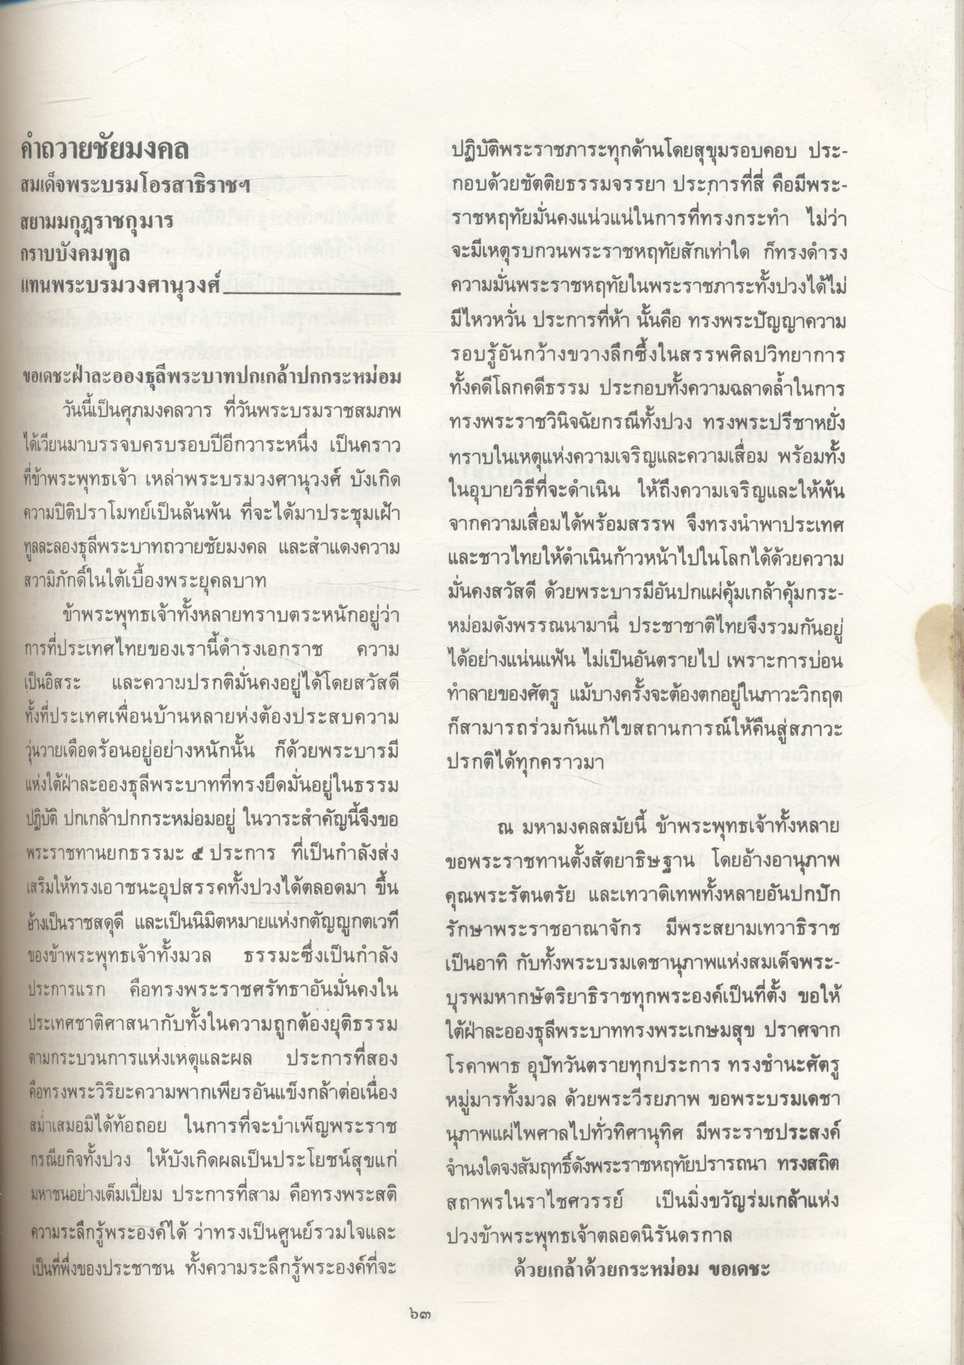 คำถวายชัยมงคล
สมเด็จพระบรมโอรสาธิราชฯ
สยามมกุฎราชกุมาร
กราบบังคมทูล
แทนพระบรมวงศานุวงศ์
ขอเดชะฝ่าละอองธุลีพระบาทปกเกล้าปกกระหม่อม
วันนี้เป็นศุภมงคลวาร ที่วันพระบรมราชสมภพ
ได้เวียนมาบรรจบครบรอบปีอีกวาระหนึ่ง เป็นคราว
ที่ข้าพระพุทธเจ้า เหล่าพระบรมวงศานุวงศ์ บังเกิด
ความปีติปราโมทย์เป็นล้นพ้น ที่จะได้มาประชุมเฝ้า
ทูลละอองธุลีพระบาทถวายชัยมงคล และสำแดงความ
สวามิภักดิ์ในใต้เบื้องพระยุคลบาท
ข้าพระพุทธเจ้าทั้งหลายทราบตระหนักอยู่ว่า
การที่ประเทศไทยของเรานี้ดำรงเอกราช ความ
เป็นอิสระ และความปรกติมั่นคงอยู่ได้โดยสวัสดี
ทั้งที่ประเทศเพื่อนบ้านหลายแห่งต้องประสบความ
วุ่นวายเดือดร้อนอยู่อย่างหนักนั้น ก็ด้วยพระบารมี
แห่งใต้ฝ่าละอองธุลีพระบาทที่ทรงยึดมั่นอยู่ในธรรม
ปฏิบัติ ปกเกล้าปกกระหม่อมอยู่ ในวาระสำคัญนี้จึงขอ
พระราชทานยกธรรมะ ๕ ประการ ที่เป็นกำลังส่ง
เสริมให้ทรงเอาชนะอุปสรรคทั้งปวงได้ตลอดมา ขึ้น
อ้างเป็นราชสดุดี และเป็นนิมิตหมายแห่งกตัญญูกตเวที
ของข้าพระพุทธเจ้าทั้งมวล ธรรมะซึ่งเป็นกำลัง
ประการแรก คือทรงพระราชศรัทธาอันมั่นคงใน
ประเทศชาติศาสนากับทั้งในความถูกต้องยุติธรรม
ตามกระบวนการแห่งเหตุและผล ประการที่สอง
คือทรงพระวิริยะความพากเพียรอันแข็งกล้าต่อเนื่อง
สม่ำเสมอมิได้ท้อถอย ในการที่จะบำเพ็ญพระราช
กรณียกิจทั้งปวง ให้บังเกิดผลเป็นประโยชน์สุขแก่
มหาชนอย่างเต็มเปี่ยม ประการที่สาม คือทรงพระสติ
ความระลึกรู้พระองค์ได้ ว่าทรงเป็นศูนย์รวมใจและ
เป็นที่พึ่งของประชาชน ทั้งความระลึกรู้พระองค์ที่จะ
ปฏิบัติพระราชภาระทุกด้านโดยสุขุมรอบคอบ ประ-
กอบด้วยขัตติยธรรมจรรยา ประการที่สี่ คือมีพระ-
ราชหฤทัยมั่นคงแน่วแน่ในการที่ทรงกระทำ ไม่ว่า
จะมีเหตุรบกวนพระราชหฤทัยสักเท่าใด ก็ทรงดำรง
ความมั่นพระราชหฤทัยในพระราชภาระทั้งปวงได้ไม่
มีไหวหวั่น ประการที่ห้า นั้นคือ ทรงพระปัญญาความ
รอบรู้อันกว้างขวางลึกซึ้งในสรรพศิลปวิทยาการ
ทั้งคดีโลกคดีธรรม ประกอบทั้งความฉลาดล้ำในการ
ทรงพระราชวินิจฉัยกรณีทั้งปวง ทรงพระปรีชาหยั่ง
ทราบในเหตุแห่งความเจริญและความเสื่อม พร้อมทั้ง
ในอุบายวิธีที่จะดำเนิน ให้ถึงความเจริญและให้พ้น
จากความเสื่อมได้พร้อมสรรพ จึงทรงนำพาประเทศ
และชาวไทยให้ดำเนินก้าวหน้าไปในโลกได้ด้วยความ
มั่นคงสวัสดี ด้วยพระบารมีอันปกแผ่คุ้มเกล้าคุ้มกระ-
หม่อมดังพรรณนามานี้ ประชาชาติไทยจึงรวมกันอยู่
ได้อย่างแน่นแฟ้น ไม่เป็นอันตรายไป เพราะการบ่อน
ทำลายของศัตรู แม้บางครั้งจะต้องตกอยู่ในภาวะวิกฤต
ก็สามารถร่วมกันแก้ไขสถานการณ์ให้คืนสู่สภาวะ
ปรกติได้ทุกคราวมา
ณ มหามงคลสมัยนี้ ข้าพระพุทธเจ้าทั้งหลาย
ขอพระราชทานตั้งสัตยาธิษฐาน โดยอ้างอานุภาพ
คุณพระรัตนตรัย และเทวาดิเทพทั้งหลายอันปกปัก
รักษาพระราชอาณาจักร มีพระสยามเทวาธิราช
เป็นอาทิ กับทั้งพระบรมเดชานุภาพแห่งสมเด็จพระ-
บุรพมหากษัตริยาธิราชทุกพระองค์เป็นที่ตั้ง ขอให้
ใต้ฝ่าละอองธุลีพระบาททรงพระเกษมสุข ปราศจาก
โรคาพาธ อุปัทวันตรายทุกประการ ทรงชำนะศัตรู
หมู่มารทั้งมวล ด้วยพระวีรยภาพ ขอพระบรมเดชา
นุภาพแผ่ไพศาลไปทั่วทิศานุทิศ มีพระราชประสงค์
จำนงใดจงสัมฤทธิ์ดังพระราชหฤทัยปรารถนา ทรงสถิต
สถาพรในราไชศวรรย์ เป็นมิ่งขวัญร่มเกล้าแห่ง
ปวงข้าพระพุทธเจ้าตลอดนิรันดรกาล
ด้วยเกล้าด้วยกระหม่อม ขอเดชะ
๖๓